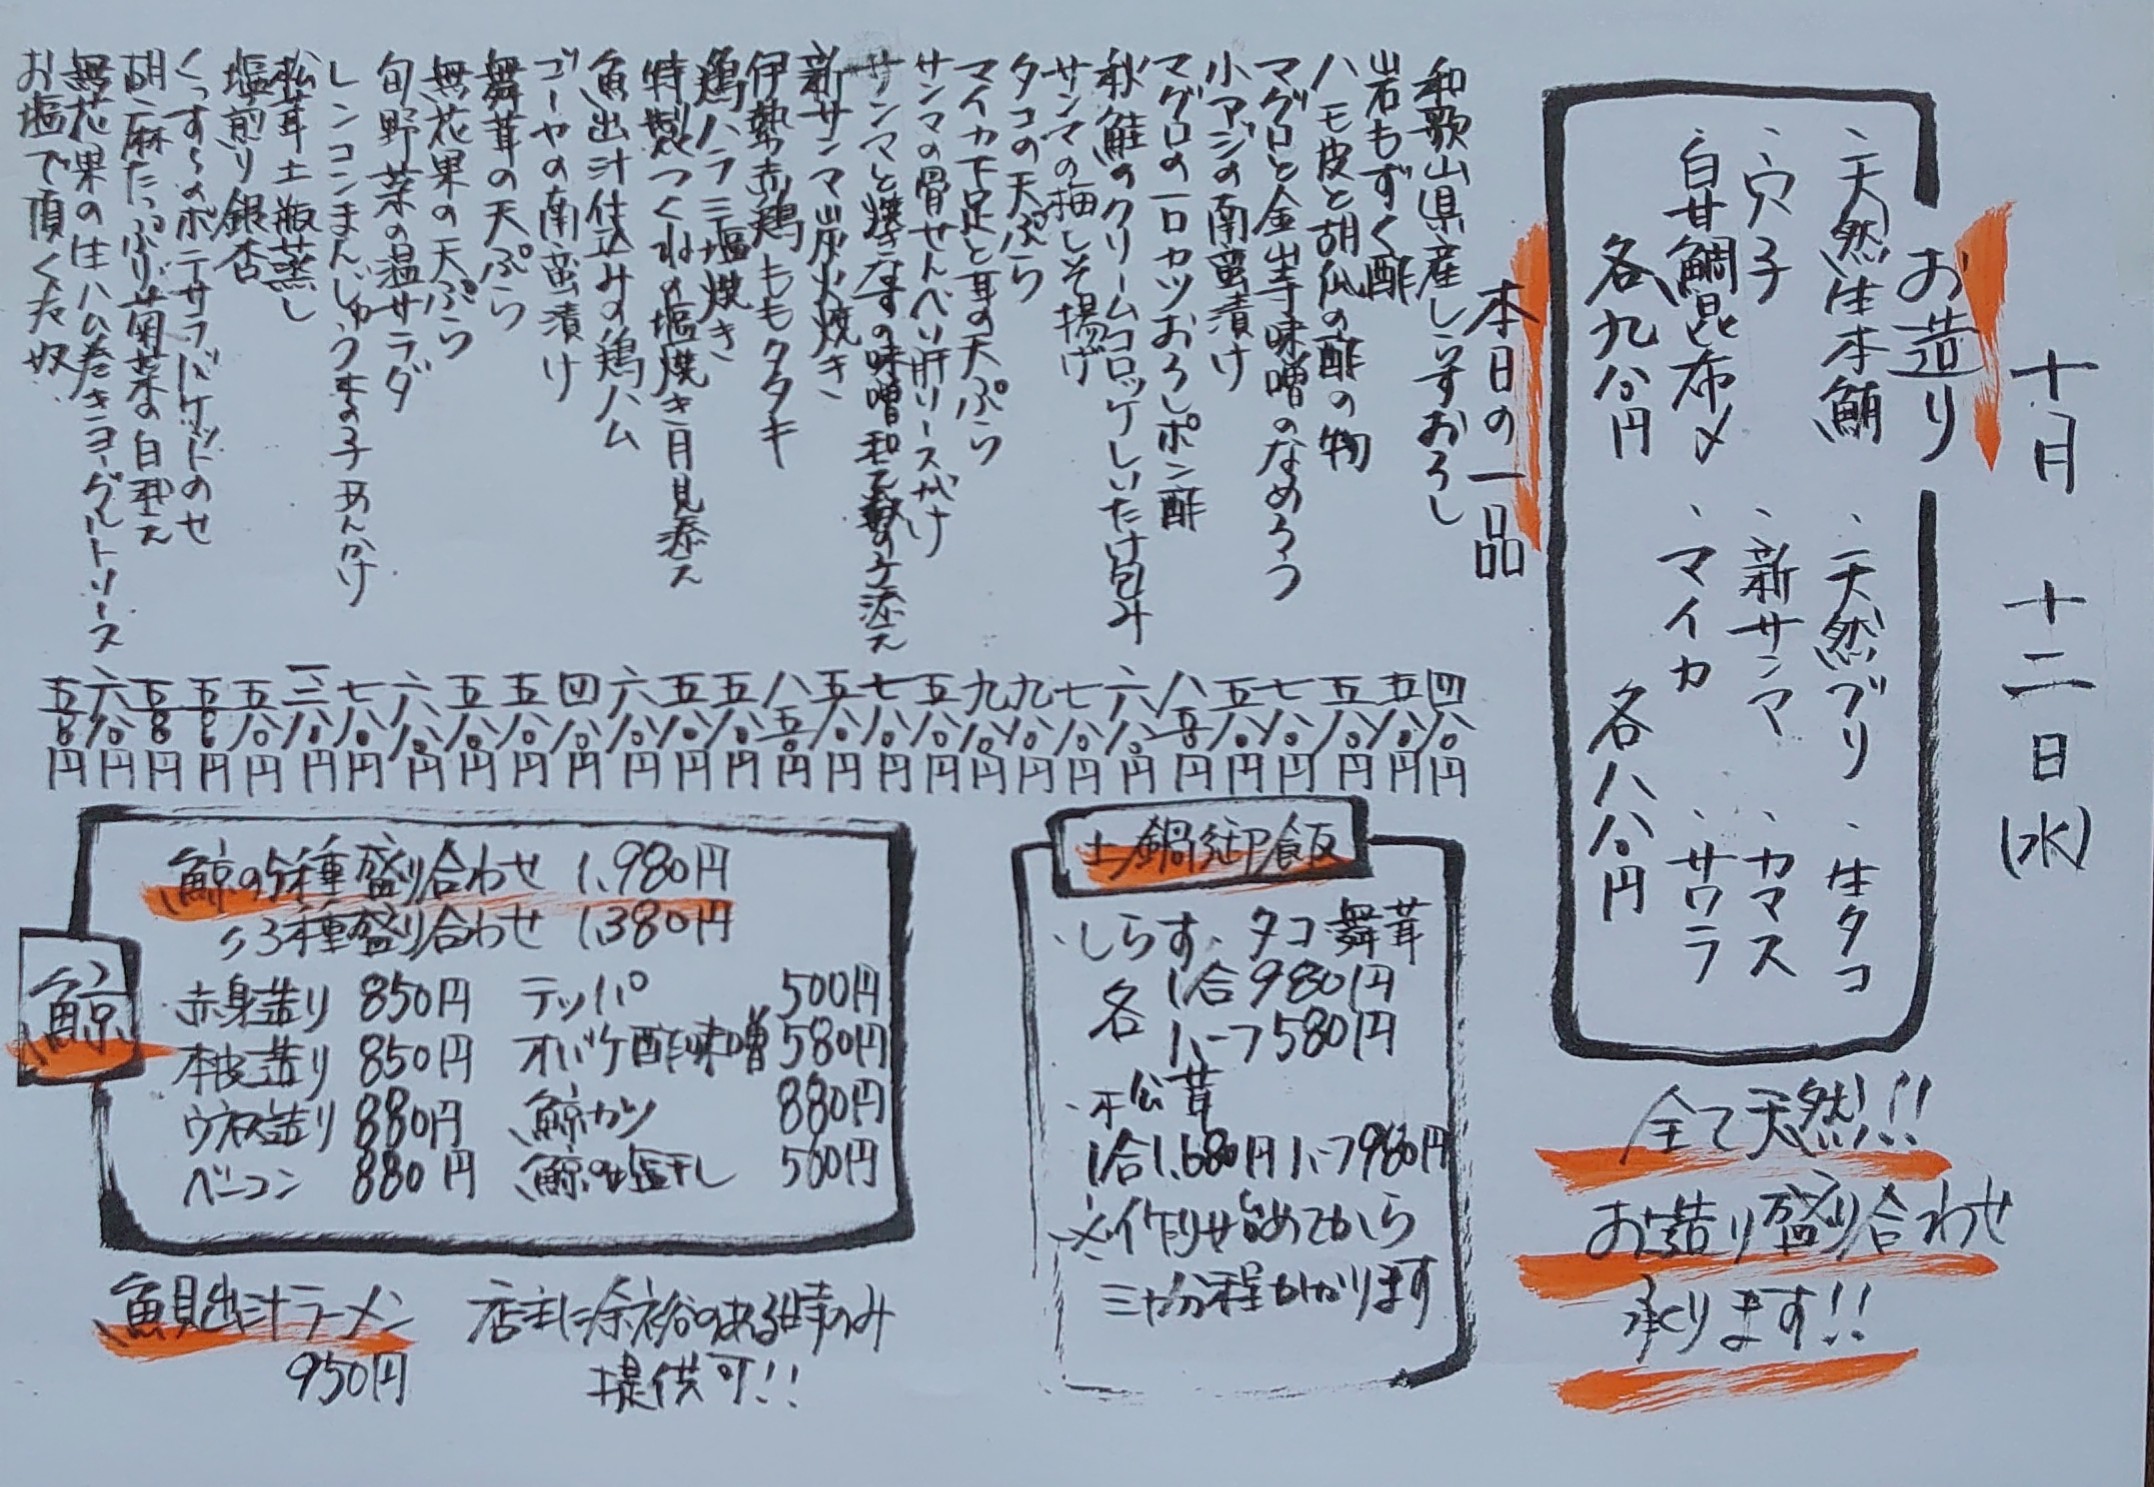 十月 十二日(水)
お造り
・天然生本鮪 ・天然ブリ ・生タコ
・穴子 ・新サンマ ・カマス
・白甘鯛昆布〆 ・マイカ ・サワラ
各九八〇円 各八八〇円
全て天然!!
お造り盛り合わせ
承ります!!
本日の一品
和歌山県産しらすおろし 四八〇円
岩もずく酢 五八〇円
ハモ皮と胡瓜の酢の物 五八〇円
マグロと金山寺味噌のなめろう 七八〇円
小アジの南蛮漬け 五八〇円
マグロの一口カツおろしポン酢 八八〇円
秋鮭のクリームコロッケしいたけ包み 六八〇円
サンマの梅しそ揚げ 七八〇円
タコの天ぷら 九八〇円
マイカ下足と耳の天ぷら 九八〇円
サンマの骨せんべい肝ソースがけ 五八〇円
サンマと焼きなすの味噌和え数の子添え 七八〇円
新サンマ炭火焼き 五八〇円
伊勢赤鶏ももタタキ 八五〇円
鶏ハラミ塩焼き 五八〇円
特製つくねの塩焼き月見添え 五八〇円
魚出汁仕込みの鶏ハム 六八〇円
ゴーヤの南蛮漬け 四八〇円
舞茸の天ぷら 五八〇円
無花果の天ぷら 五八〇円
旬野菜の温サラダ 六八〇円
レンコンまんじゅうきの子あんかけ 七八〇円
松茸土瓶蒸し 一、二八〇円
塩煎り銀杏 五八〇円
くっすらのポテサラバケットのせ 五五〇円
胡麻たっぷり菊菜の白和え 五五〇円
無花果の生ハム巻きヨーグルトソース 六八〇円
お塩で頂くた奴 五五〇円
土鍋御飯
・しらす、タコ、舞茸
各 1合980円
ハーフ580円
・松茸
1合1,680円 ハーフ980円
※作り始めてから
三十分程かかります
鯨
鯨の5種盛り合わせ 1,980円
〃3種盛り合わせ 1,380円
赤身造り 850円 テッパ 500円
本皮造り 850円 オバケ酢味噌 580円
ウネス造り 880円 鯨カツ 880円
ベーコン 880円 鯨の塩干し 500円
魚貝出汁ラーメン
950円
店主に余裕のある時のみ
提供可!!